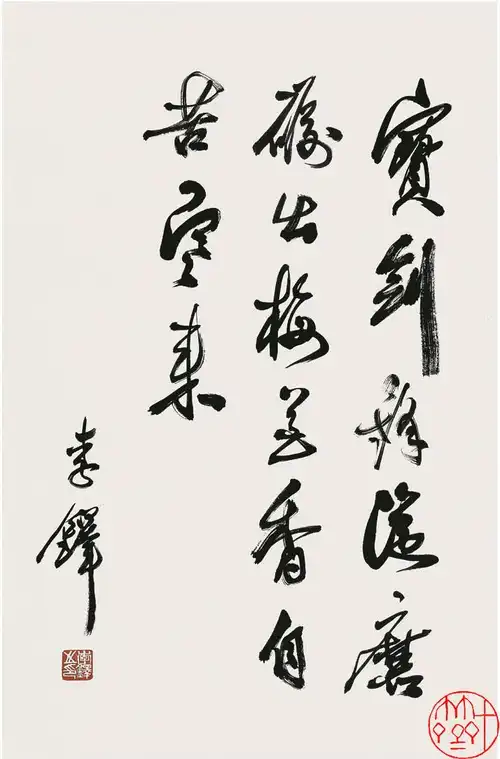 寶劍鋒從磨
礪出梅花香自
苦寒来
李鐸